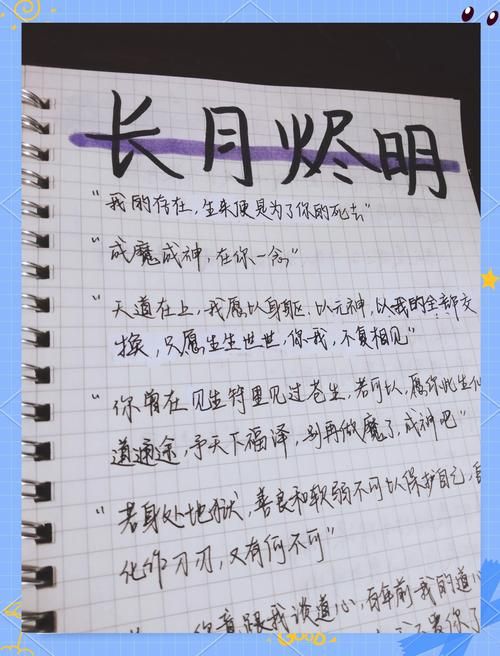 长月烬明
“我的存在，生来便是为了你的死去”
“成魔成神，在你一念”
“天道在上，我愿以身躯，以元神，以我的全部交
换，只愿生生世世，你我，不复相见”
“你曾在见生符里见过苍生，若可以，愿你此生仙
道通途，予天下福泽，别再做魔了，成神吧”
“若身处地狱，善良和软弱不可以保护自己，自
化作刀刃，又有何不可”
你竟跟我谈道心，百年前我的道心
GOOD